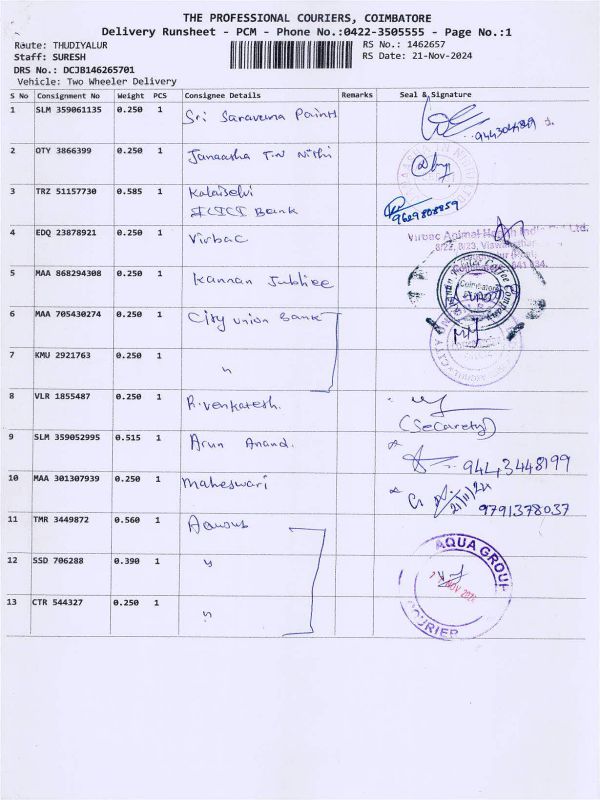 THE PROFESSIONAL COURIERS, COIMBATORE
Delivery Runsheet - PCM - Phone No.:0422-3505555 - Page No.:1
Route: THUDIYALUR
RS No.: 1462657
Staff: SURESH
RS Date: 21-Nov-2024
DRS No.: DCJB146265701
Vehicle: Two Wheeler Delivery
S No Consignment No Weight PCS Consignee Details Remarks Seal & Signature
1 SLM 359061135 0.250 1 Sri Saravana Paints
2 QTY 3866399 0.250 1 Janaasha T.N Nithi
3 TRZ 51157730 0.585 1 Kalaiselvi
ICICI Bank 9629808859
4 EDQ 23878921 0.250 1 Virbac Virbac Animal Health India Pvt Ltd.
5 MAA 868294308 0.250 1 Kannan Jubliee Coimbatore
6 MAA 705430274 0.250 1 City union Bank
7 KMU 2921763 0.250 1 "
8 VLR 1855487 0.250 1 R.venkatesh.
(Secarety)
9 SLM 359052995 0.515 1 Arun Anand. 9443448199
10 MAA 301307939 0.250 1 Maheswari 21/11/24
9791378037
11 TMR 3449872 0.560 1 Aquosub
12 SSD 706288 0.390 1 " AQUA GROUP
NOV 2024
13 CTR 544327 0.250 1 "